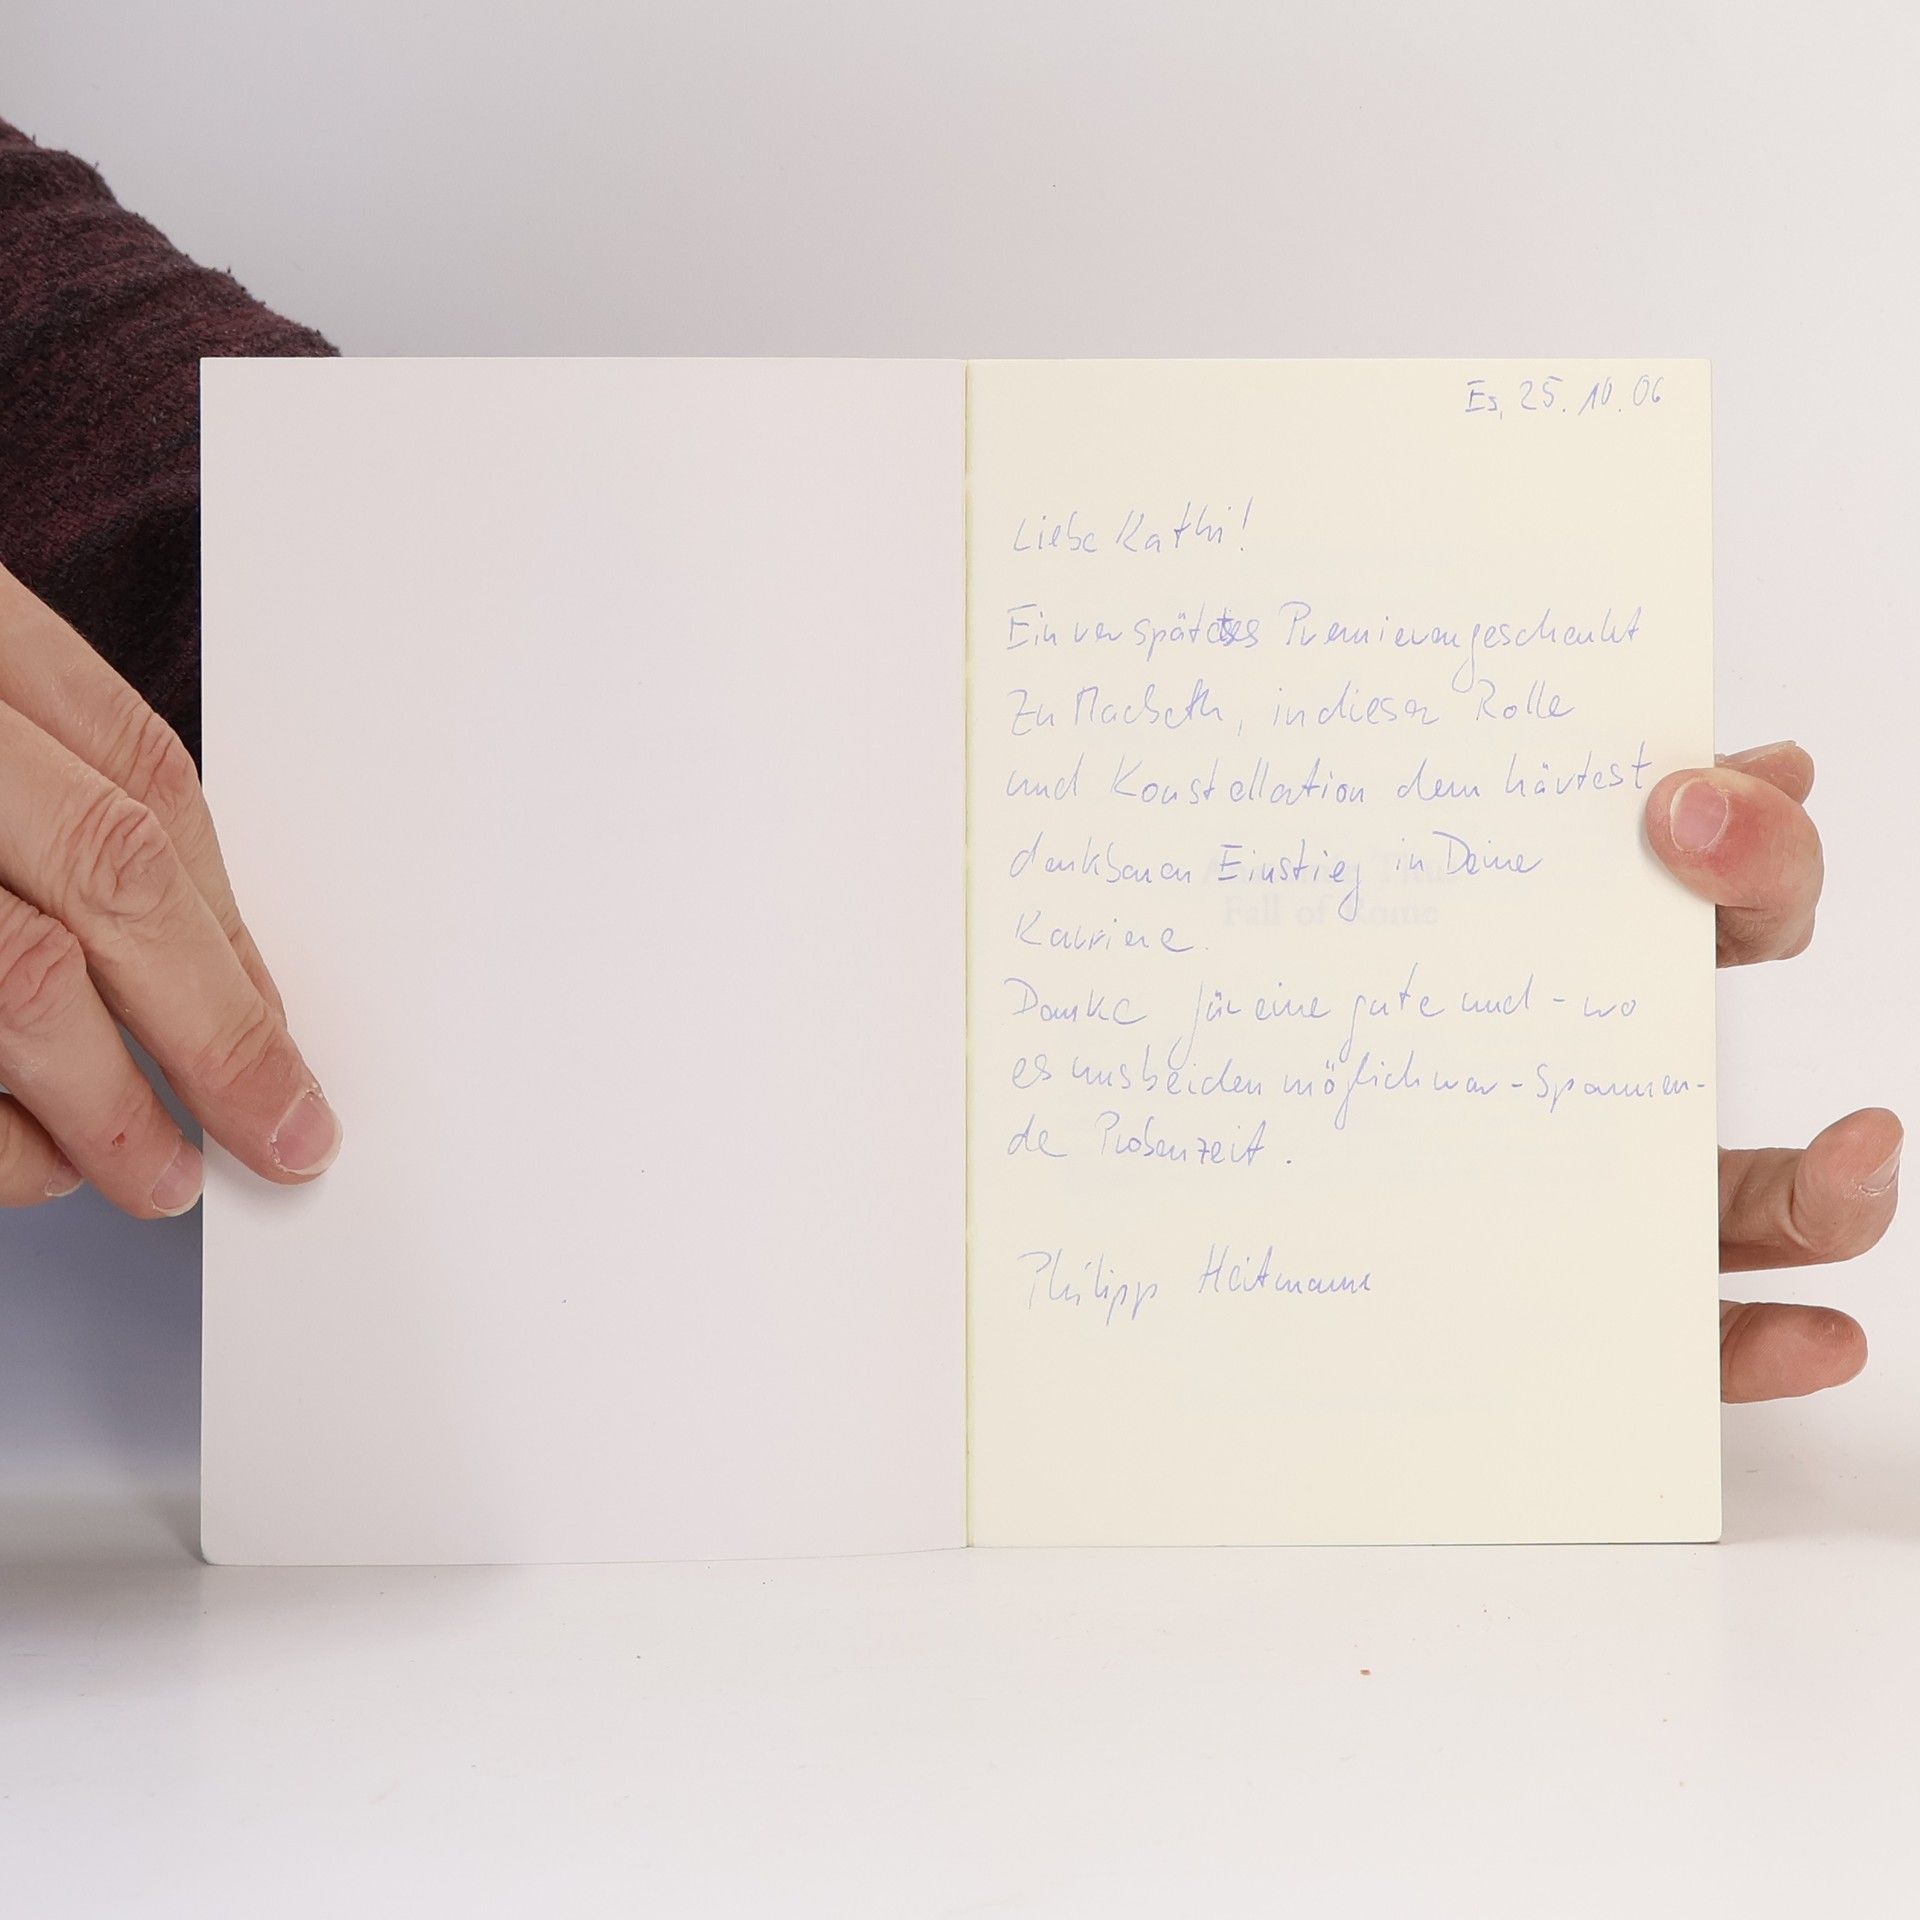 Es, 25.10.06
Liebe Kathi!
Ein verspätetes Premierengeschenkt
zu Macbeth, in dieser Rolle
und Konstellation dem härtest
denkbaren Einstieg in Deine
Karriere.
Danke für eine gute und - wo
es uns beiden möglich war - spannen-
de Probenzeit.
Philipp Heitmann
Fall of Rome